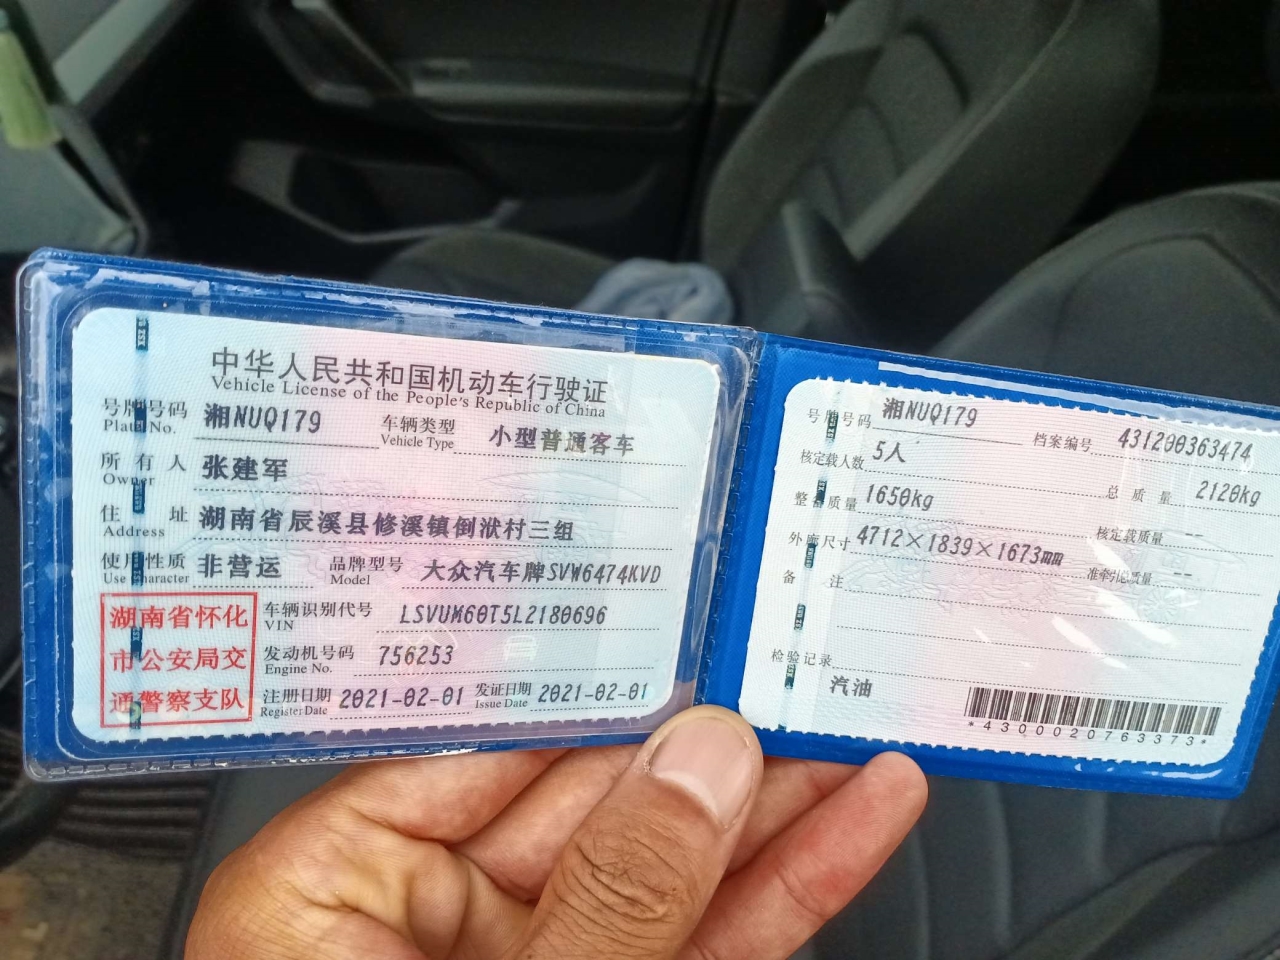 中华人民共和国机动车行驶证
Vehicle License of the People's Republic of China
号牌号码 湘NUQ179 车辆类型 小型普通客车
Plate No. Vehicle Type
所有人 张建军
Owner
住址 湖南省辰溪县修溪镇倒洑村三组
Address
使用性质 非营运 品牌型号 大众汽车牌SVW6474KVD
Use Character Model
湖南省怀化
市公安局交
通警察支队
车辆识别代号 LSVUM60T5L2180696
VIN
发动机号码 756253
Engine No.
注册日期 2021-02-01 发证日期 2021-02-01
Register Date Issue Date
号牌号码 湘NUQ179 档案编号 431200363474
核定载人数 5人 总质量 2120kg
整备质量 1650kg 核定载质量 --
外廓尺寸 4712×1839×1673mm 准牵引总质量 --
备注
检验记录
汽油
*4300020763373*